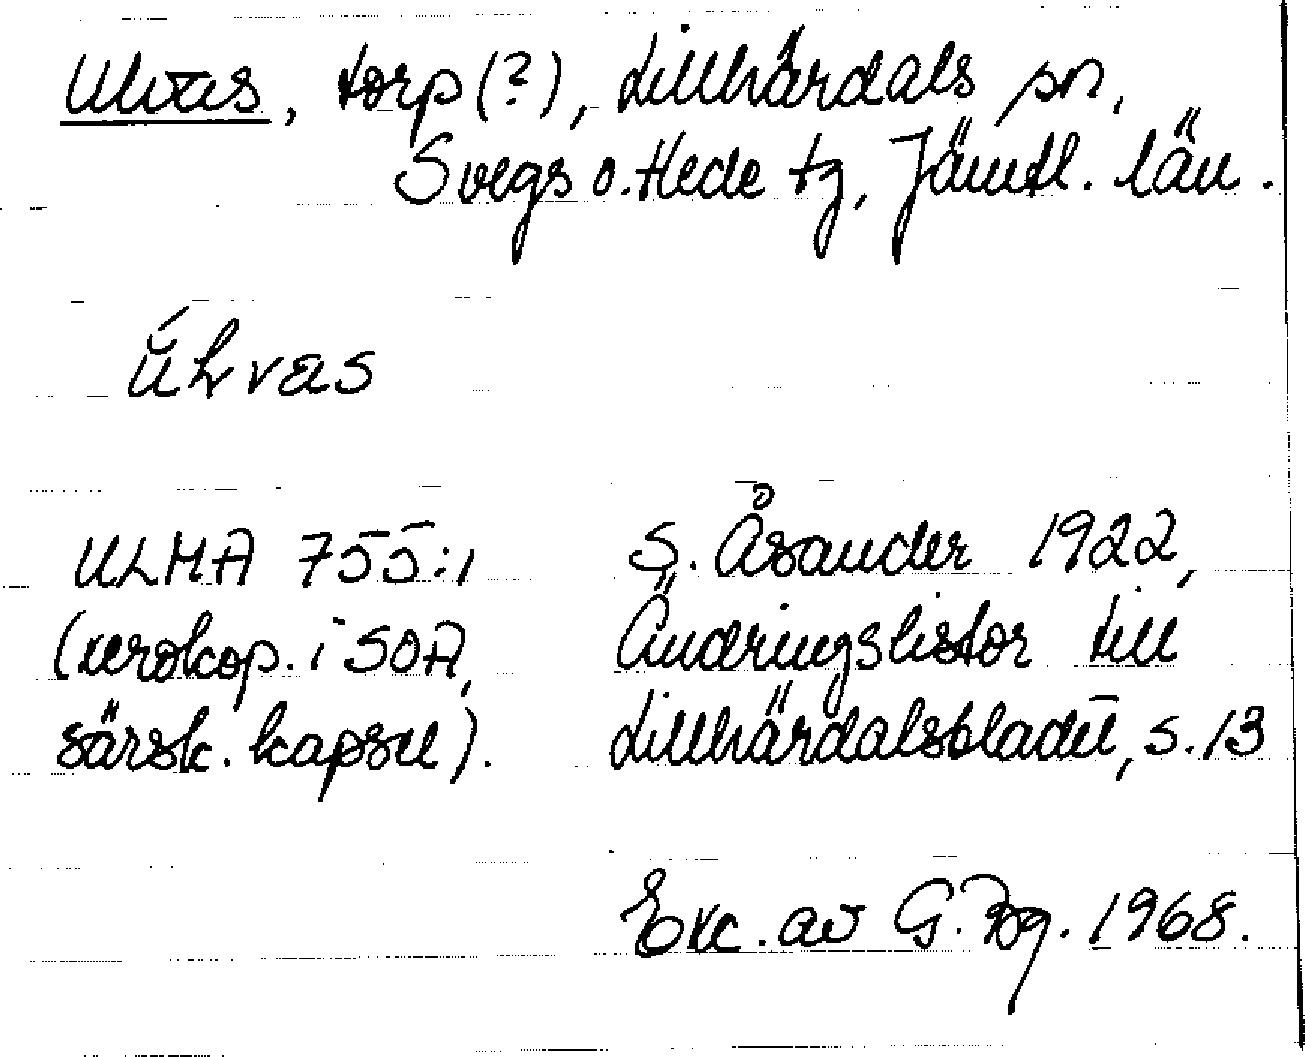 Ulvas, torp (?), Lillhärdals sn,
Svegs o. Hede tg, Jämtl. län.
ULMA 755:1
S. Åsander 1922,
(xerokop. i SOA,
Ändringslistor till
särsk. kapsel).
Lillhärdalsbladet, s. 13
Exc. av G. 1968.